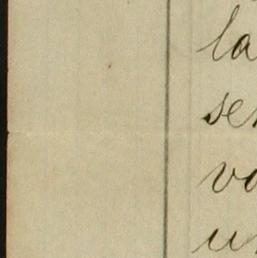 la
se
vo
u